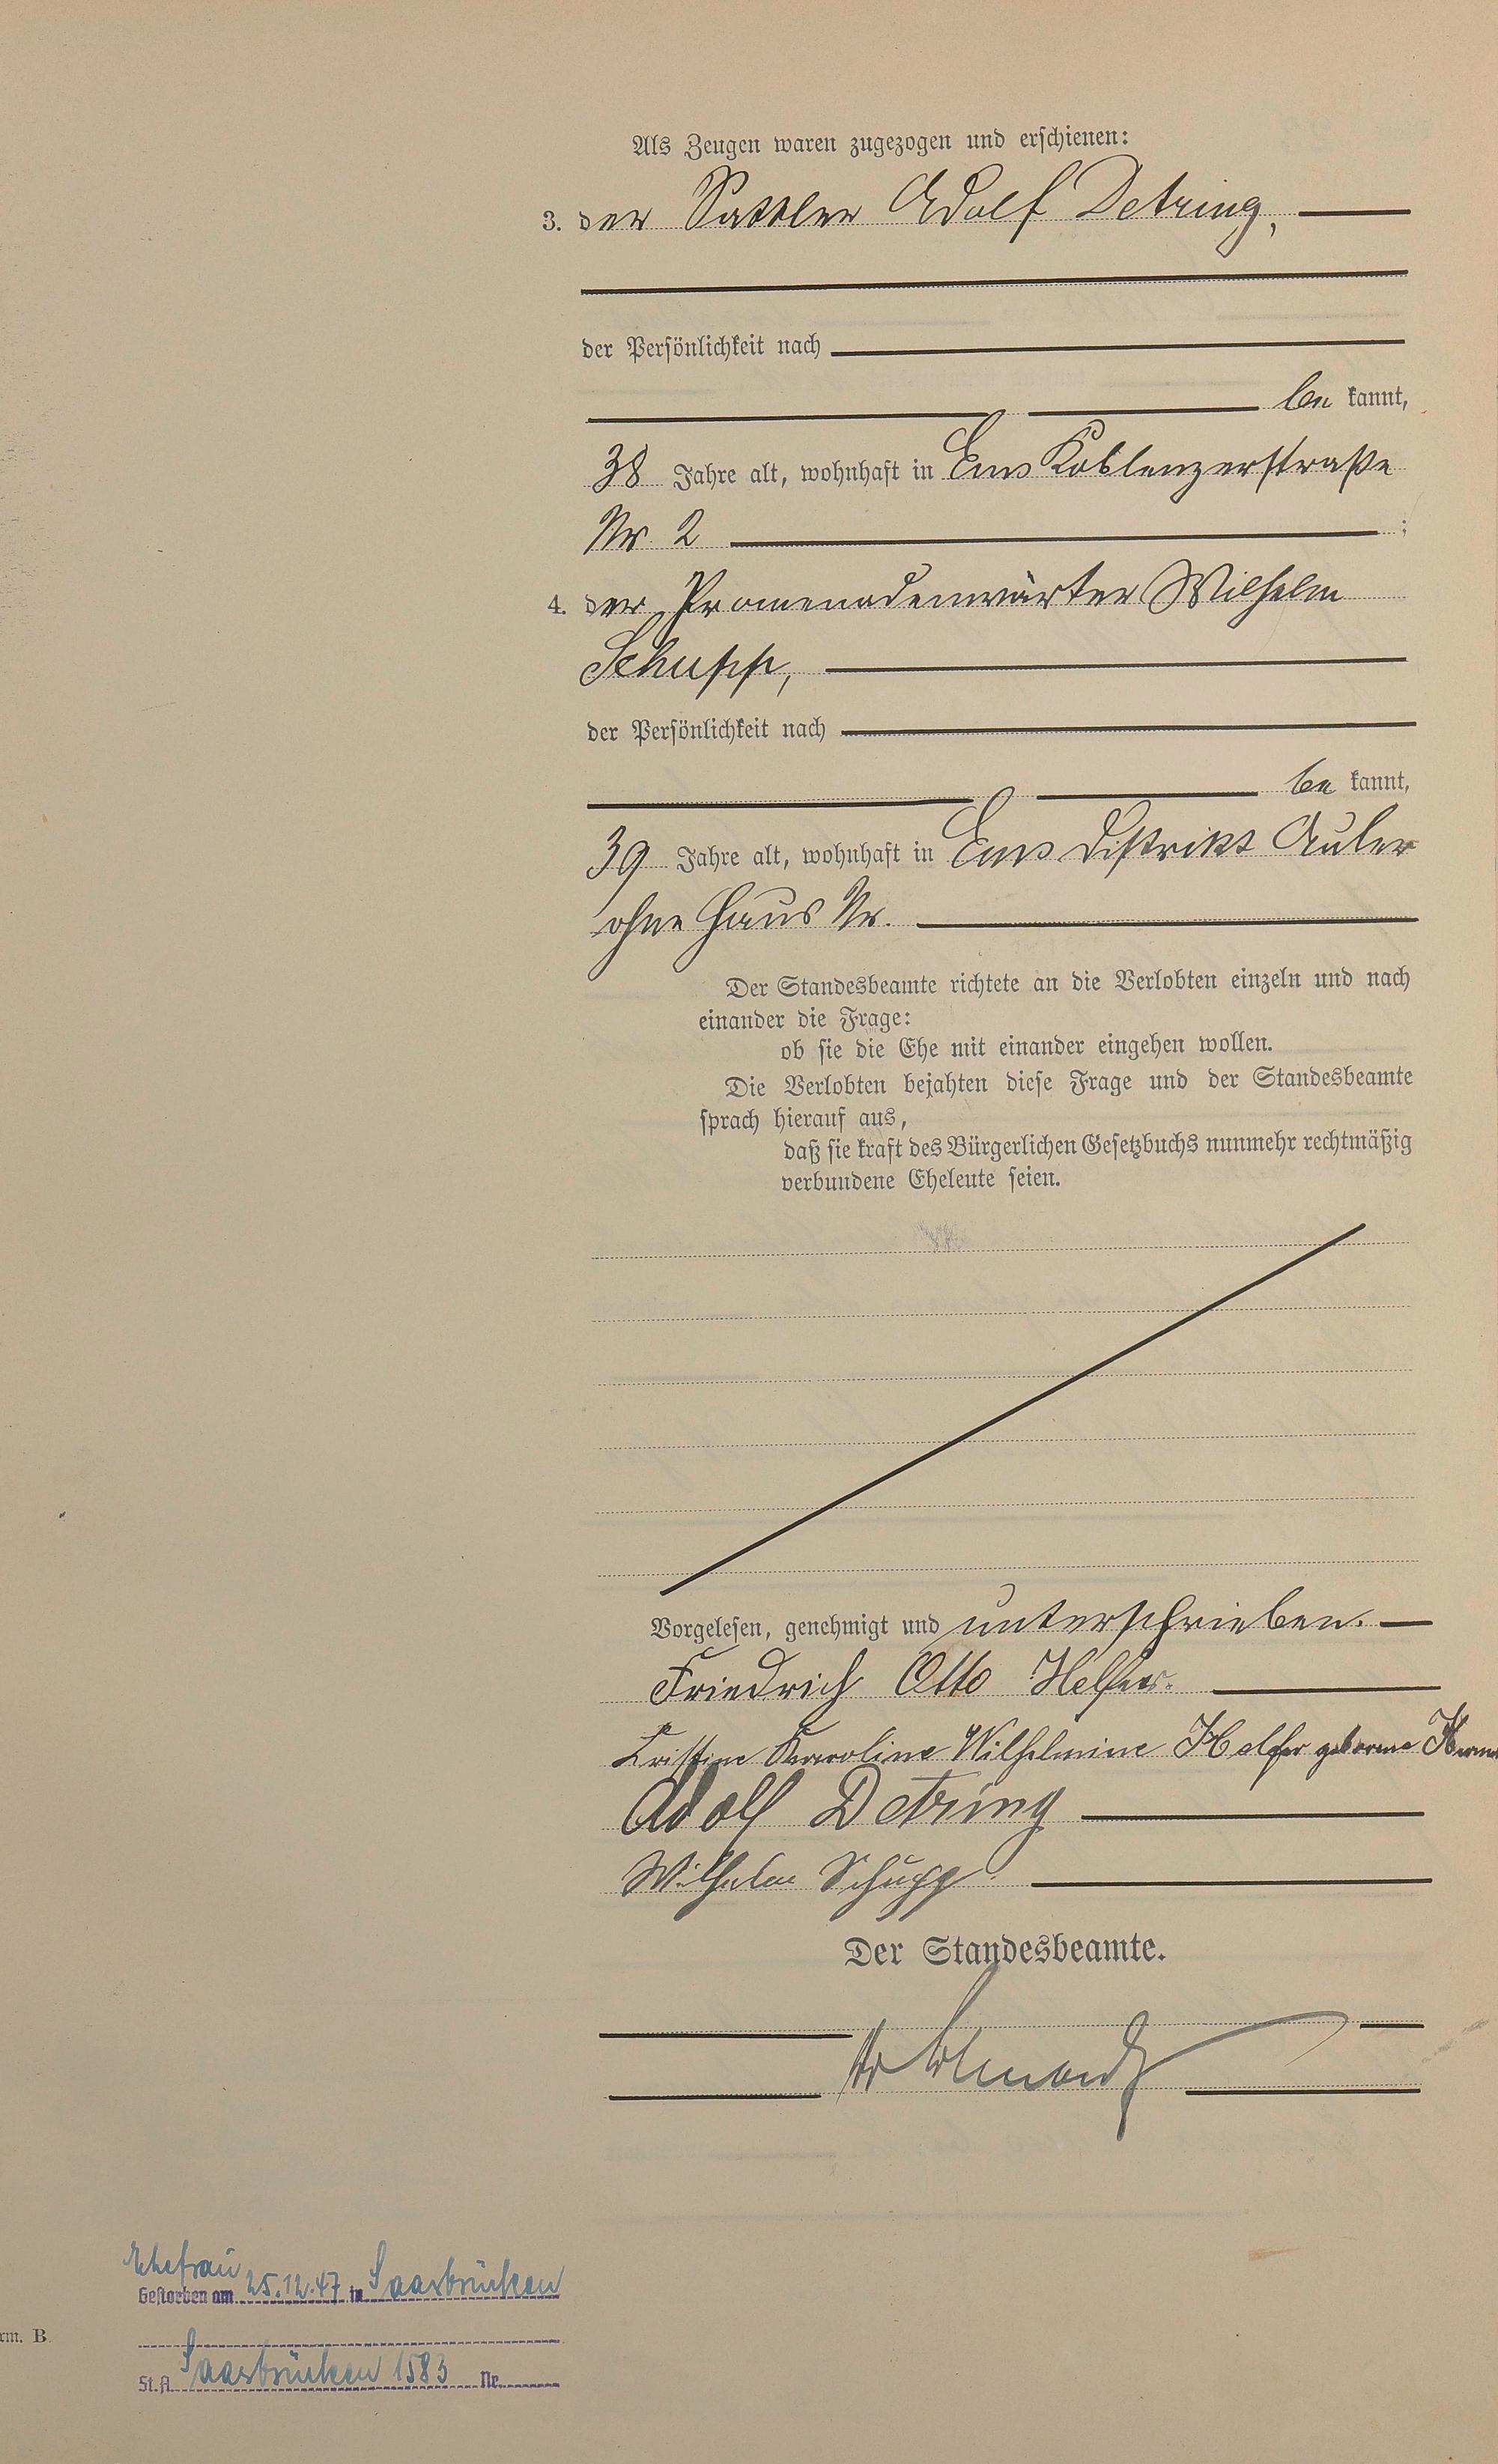 Als Zeugen waren zugezogen und erschienen:
3. der Sattler Adolf Detring,
der Persönlichkeit nach
be kannt,
38 Jahre alt, wohnhaft in Ems Koblenzerstraße
Nr. 2 ;
4. der Promenadenwärter Wilhelm
Schupp,
der Persönlichkeit nach
be kannt,
39 Jahre alt, wohnhaft in Ems Distrikt Auler
ohne Haus Nr.
Der Standesbeamte richtete an die Verlobten einzeln und nach
einander die Frage:
ob sie die Ehe mit einander eingehen wollen.
Die Verlobten bejahten diese Frage und der Standesbeamte
sprach hierauf aus,
daß sie kraft des Bürgerlichen Gesetzbuchs nunmehr rechtmäßig
verbundene Eheleute seien.
Vorgelesen, genehmigt und unterschrieben.
Friedrich Otto Helfer.
Kristine Karoline Wilhelmine Helfer geborene
Adolf Detring
Wilhelm Schupp
Der Standesbeamte.
Ehefrau
Gestorben am 25.12.47 in Saarbrücken
St.A. Saarbrücken 1583 Nr.
rm. B